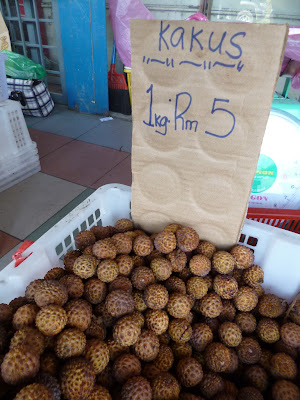 kakus
1kg-Rm 5